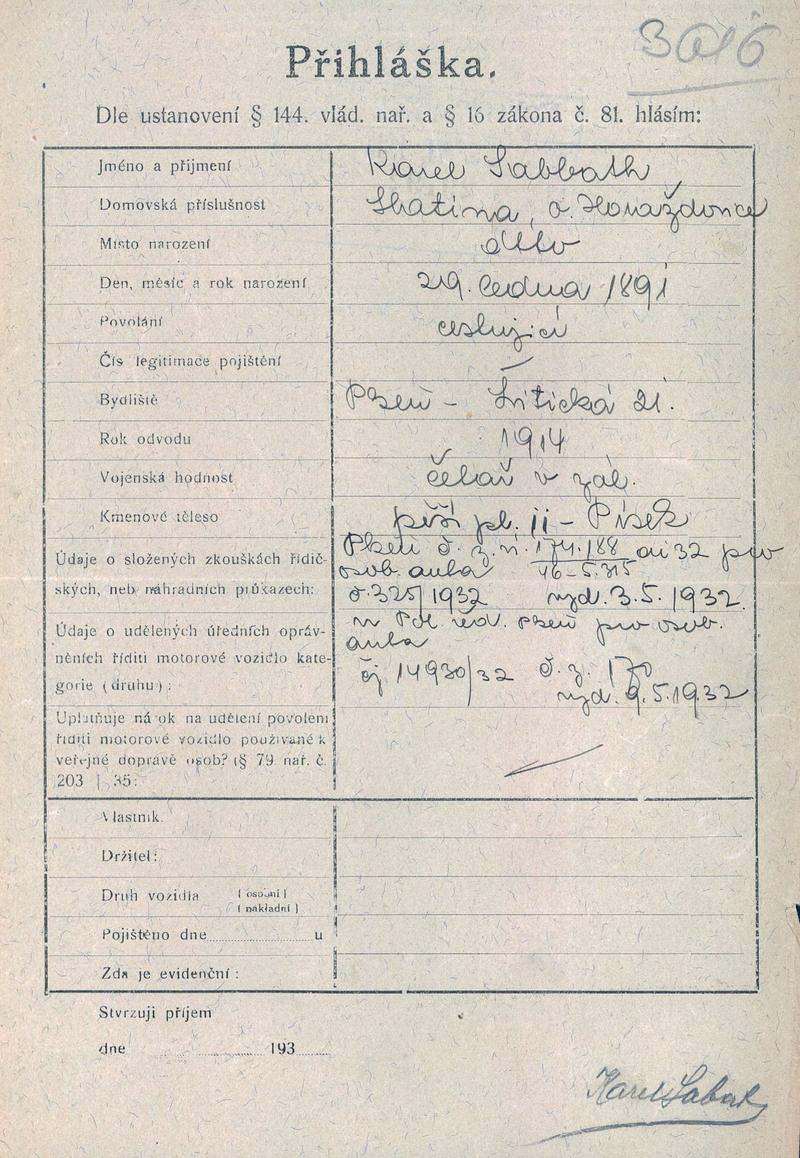 3016
Přihláška.
Dle ustanovení § 144. vlád. nař. a § 16 zákona č. 81. hlásím:
Jméno a přijmení Karel Sabbath
Domovská příslušnost o. Horažďovice
Místo narození dtto
Den, měsíc a rok narození 29. ledna 1891
Povolání cestující
Čís legitimace pojištění —
Bydliště Plzeň - Litická 21.
Rok odvodu 1914
Vojenská hodnost v zál.
Kmenové těleso pěší pl. 11 - Písek
Údaje o složených zkouškách řidič- Plzeň č. 174.188 ai 32 pro
osob. auta 46-5.315
ských, neb náhradních průkazech: č. 325/1932 vyd. 3.5.1932.
Údaje o udělených úředních opráv- Pol. řed. Plzeň pro osob.
auta
něních říditi motorové vozidlo kate- čj. 14930/32 č. z. 170
gorie (druhu): vyd. 9.5.1932
Uplatňuje nárok na udělení povolení
říditi motorové vozidlo používané k
veřejné dopravě osob? (§ 79. nař. č. —
203 | 35:
Vlastník
Držitel:
Druh vozidla ( osobní )
( nákladní )
Pojištěno dne............u
Zda je evidenční:
Stvrzuji příjem
dne ............ 193......
Karel Sabath